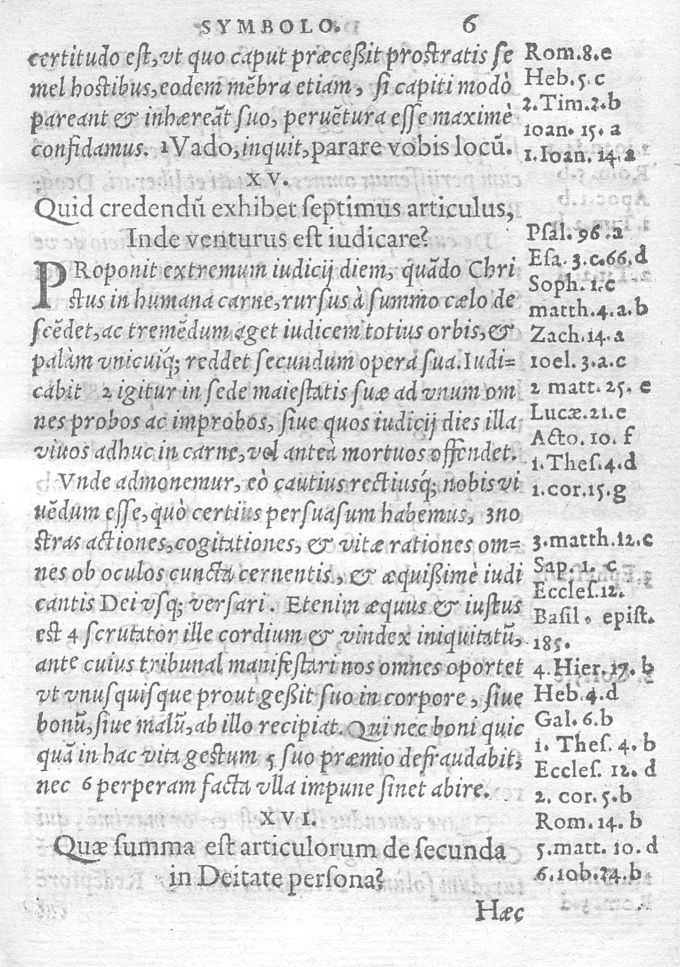 SYMBOLO. 6
certitudo est, vt quo caput præceßit prostratis se
mel hostibus, eodem mẽbra etiam, si capiti modò
pareant & inhæreãt suo, peruẽtura esse maximè
confidamus. 1 Vado, inquit, parare vobis locũ.
XV.
Quid credendũ exhibet septimus articulus,
Inde venturus est iudicare?
PRoponit extremum iudicij diem, quãdo Chri
stus in humana carne, rursus à summo cælo de
scẽdet, ac tremẽdum aget iudicem totius orbis, &
palàm vnicuiq; reddet secundum opera sua. Iudi=
cabit 2 igitur in sede maiestatis suæ ad vnum om
nes probos ac improbos, siue quos iudicij dies illa
viuos adhuc in carne, vel anteà mortuos offendet.
Vnde admonemur, eò cautius rectiusq́; nobis vi
uẽdum esse, quò certius persuasum habemus, 3 no
stras actiones, cogitationes, & vitæ rationes om=
nes ob oculos cuncta cernentis, & æquißimè iudi
cantis Dei vsq; versari. Etenim æquus & iustus
est 4 scrutator ille cordium & vindex iniquitatũ,
ante cuius tribunal manifestari nos omnes oportet
vt vnusquisque prout geßit suo in corpore, siue
bonũ, siue malũ, ab illo recipiat. Qui nec boni quic
quã in hac vita gestum 5 suo præmio defraudabit,
nec 6 perperam facta vlla impune sinet abire.
XVI.
Quæ summa est articulorum de secunda
in Deitate persona?
Hæc
Rom. 8. e
Heb. 5. c
2. Tim. 2. b
ioan. 15. a
1. Ioan. 14. a
Psal. 96. a
Esa. 3. c. 66. d
Soph. 1. c
matth. 4. a. b
Zach. 14. a
ioel. 3. a. c
2 matt. 25. e
Lucæ. 21. e
Acto. 10. f
1. Thes. 4. d
1. cor. 15. g
3. matth. 12. c
Sap. 1. c
Eccles. 12.
Basil. epist.
185.
4. Hier. 17. b
Heb. 4. d
Gal. 6. b
1. Thes. 4. b
Eccles. 12. d
2. cor. 5. b
Rom. 14. b
5. matt. 10. d
6. iob. 24. b